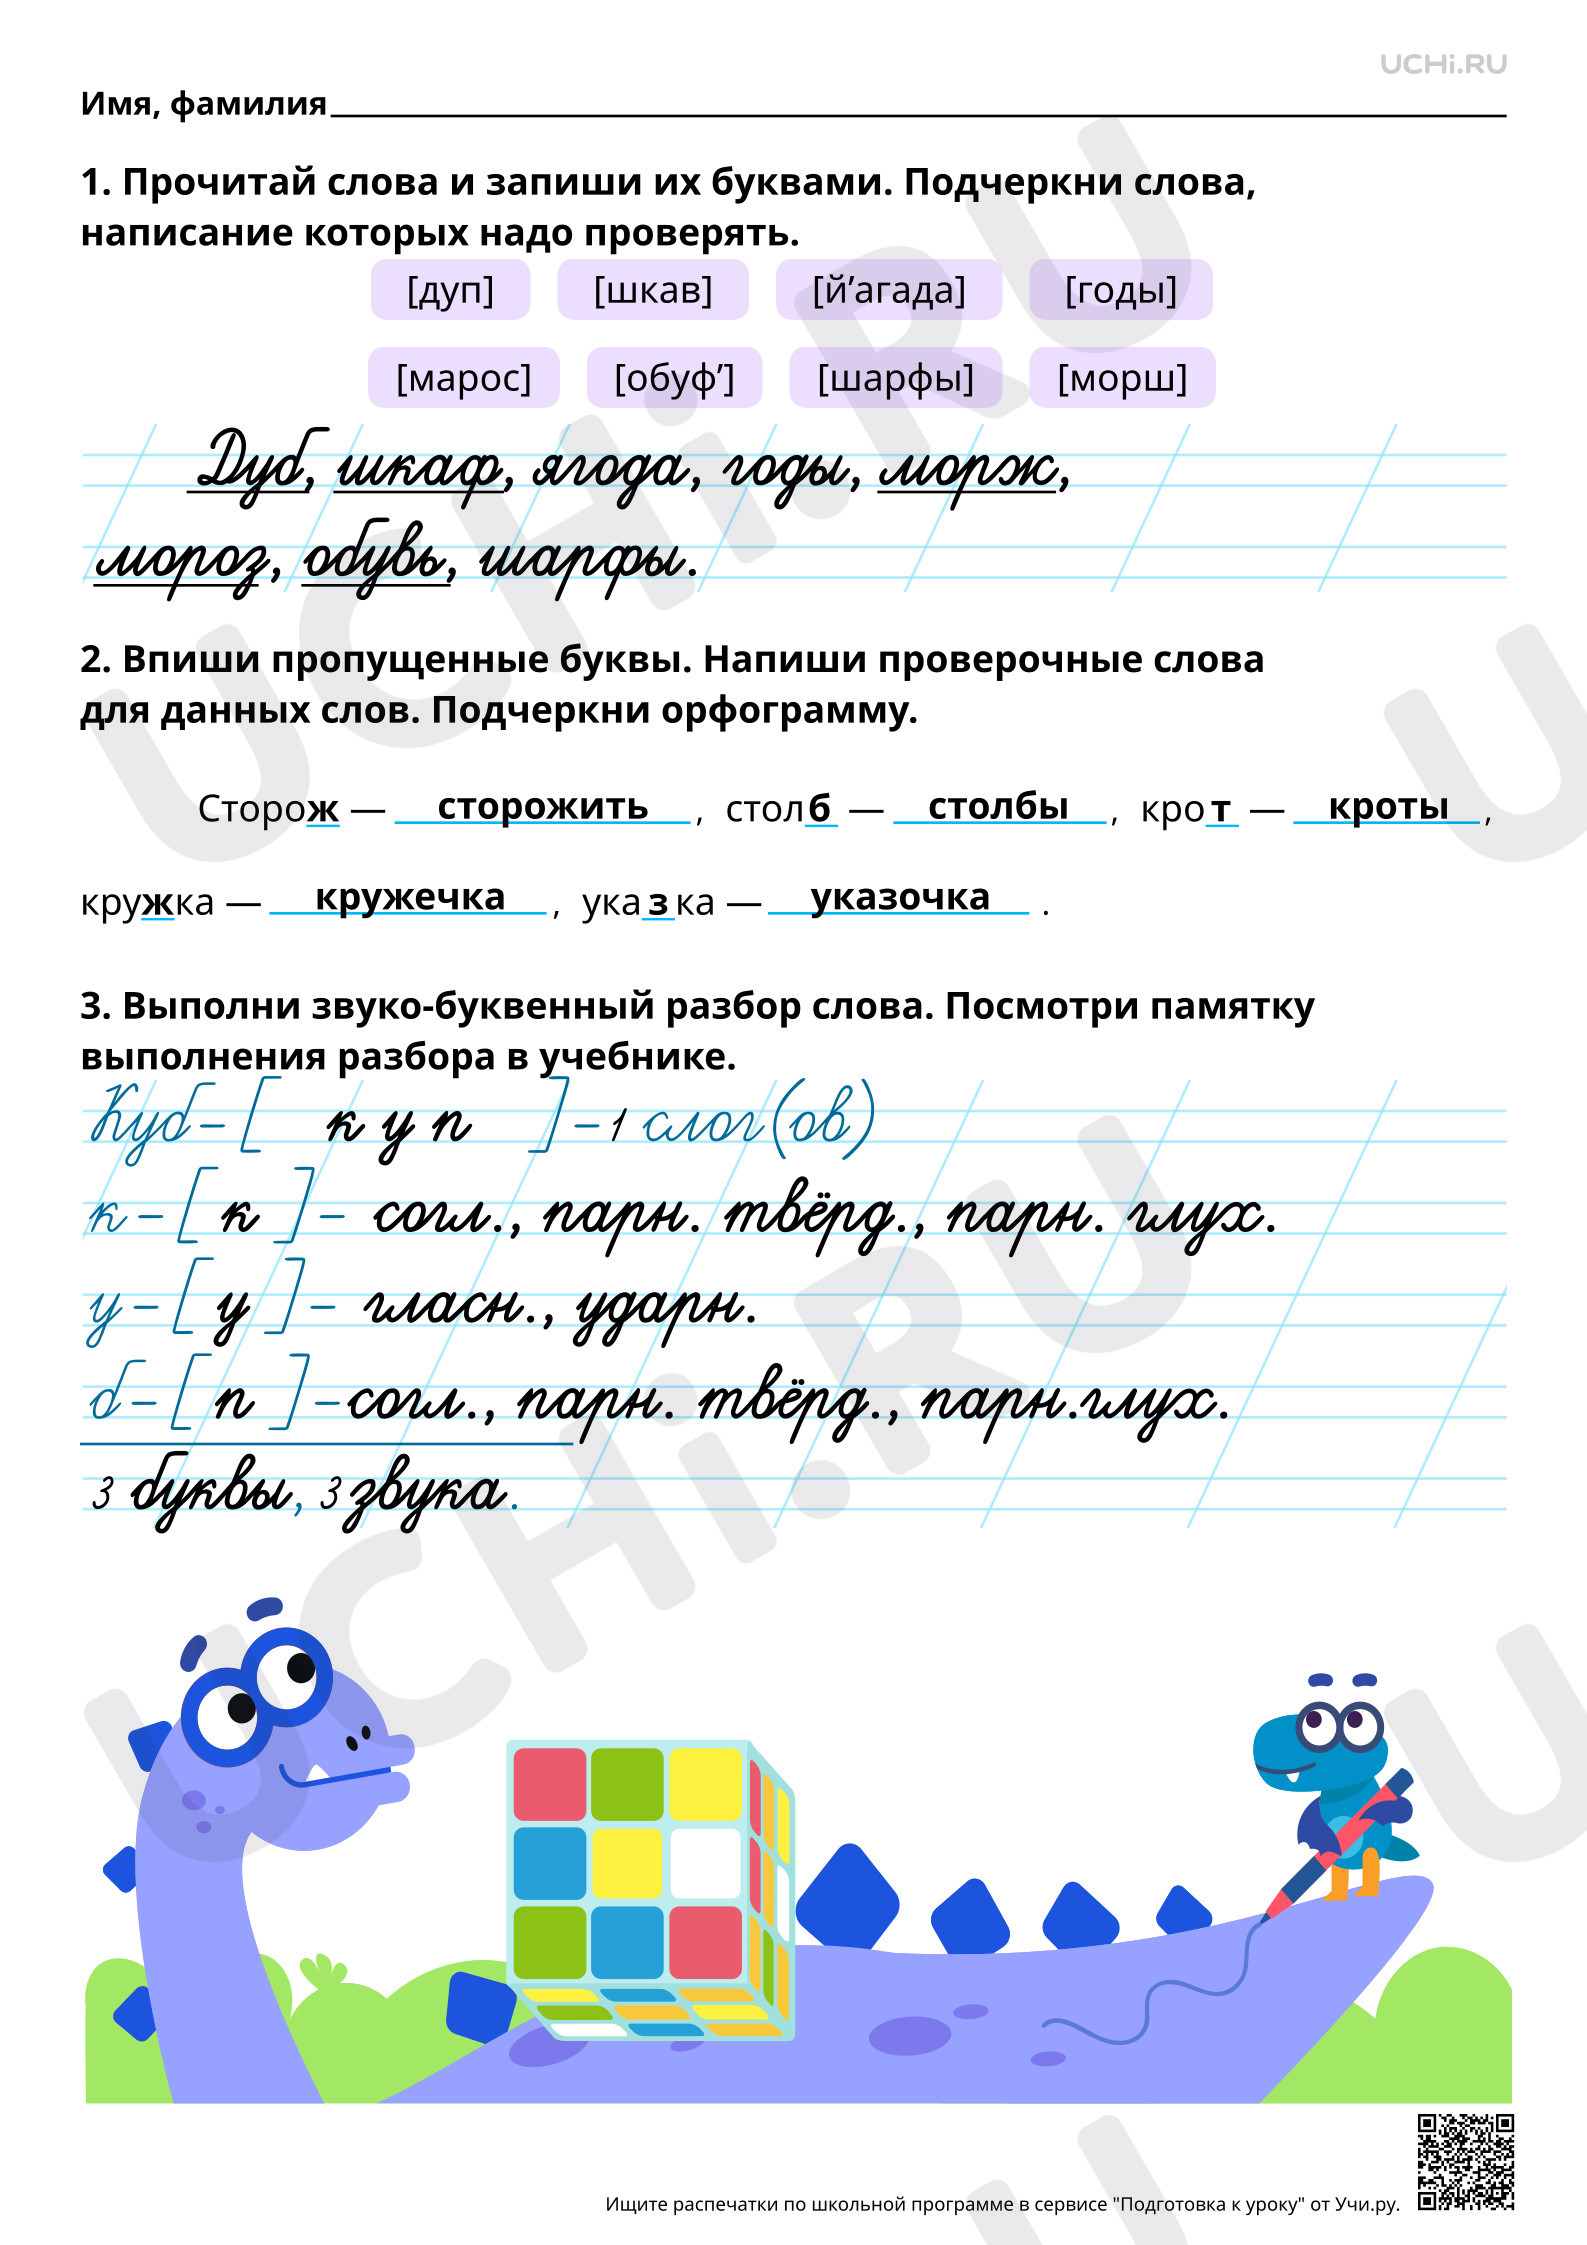 UCHi.RU
Имя, фамилия
1. Прочитай слова и запиши их буквами. Подчеркни слова,
написание которых надо проверять.
[дуп] [шкав] [й’агада] [годы]
[марос] [обуф’] [шарфы] [морш]
Дуб, шкаф, ягода, годы, морж,
мороз, обувь, шарфы.
2. Впиши пропущенные буквы. Напиши проверочные слова
для данных слов. Подчеркни орфограмму.
Сторож — сторожить, столб — столбы, крот — кроты,
кружка — кружечка, указка — указочка.
3. Выполни звуко-буквенный разбор слова. Посмотри памятку
выполнения разбора в учебнике.
Куб – [ к у п ] – 1 слог(ов)
к – [ к ] – согл., парн. твёрд., парн. глух.
у – [ у ] – гласн., ударн.
б – [ п ] – согл., парн. твёрд., парн.глух.
3 буквы, 3 звука.
Ищите распечатки по школьной программе в сервисе "Подготовка к уроку" от Учи.ру.